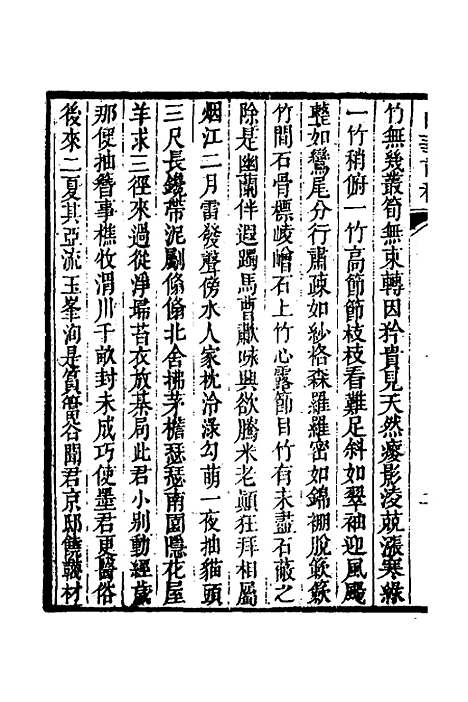 竹無幾叢筍無束轉因矜貴見天然瘦影淩兢漲寒綠
一竹稍俯一竹高節節枝枝看難足斜如翠袖迎風颺
整如鸞尾分行肅疎如紗格森羅羅密如錦棚脫簌簌
竹間石骨標崚嶒石上竹心露節目竹有未盡石蔽之
除是幽蘭伴遐躅馬曹獻咏興欲騰米老顛狂拜相屬
烟江二月雷發聲傍水人家枕泠淥勾萌一夜抽貓頭
三尺長鑱帶泥劚翛翛北舍拂茅檐瑟瑟南園隱花屋
羊求三徑來過從淨埽苔衣放棊局此君小别動經歲
那便抽簪事樵牧渭川千畝封未成巧使墨君更醫俗
後來二夏其亞流玉峯洵是篔簹谷聞君京邸饒
材